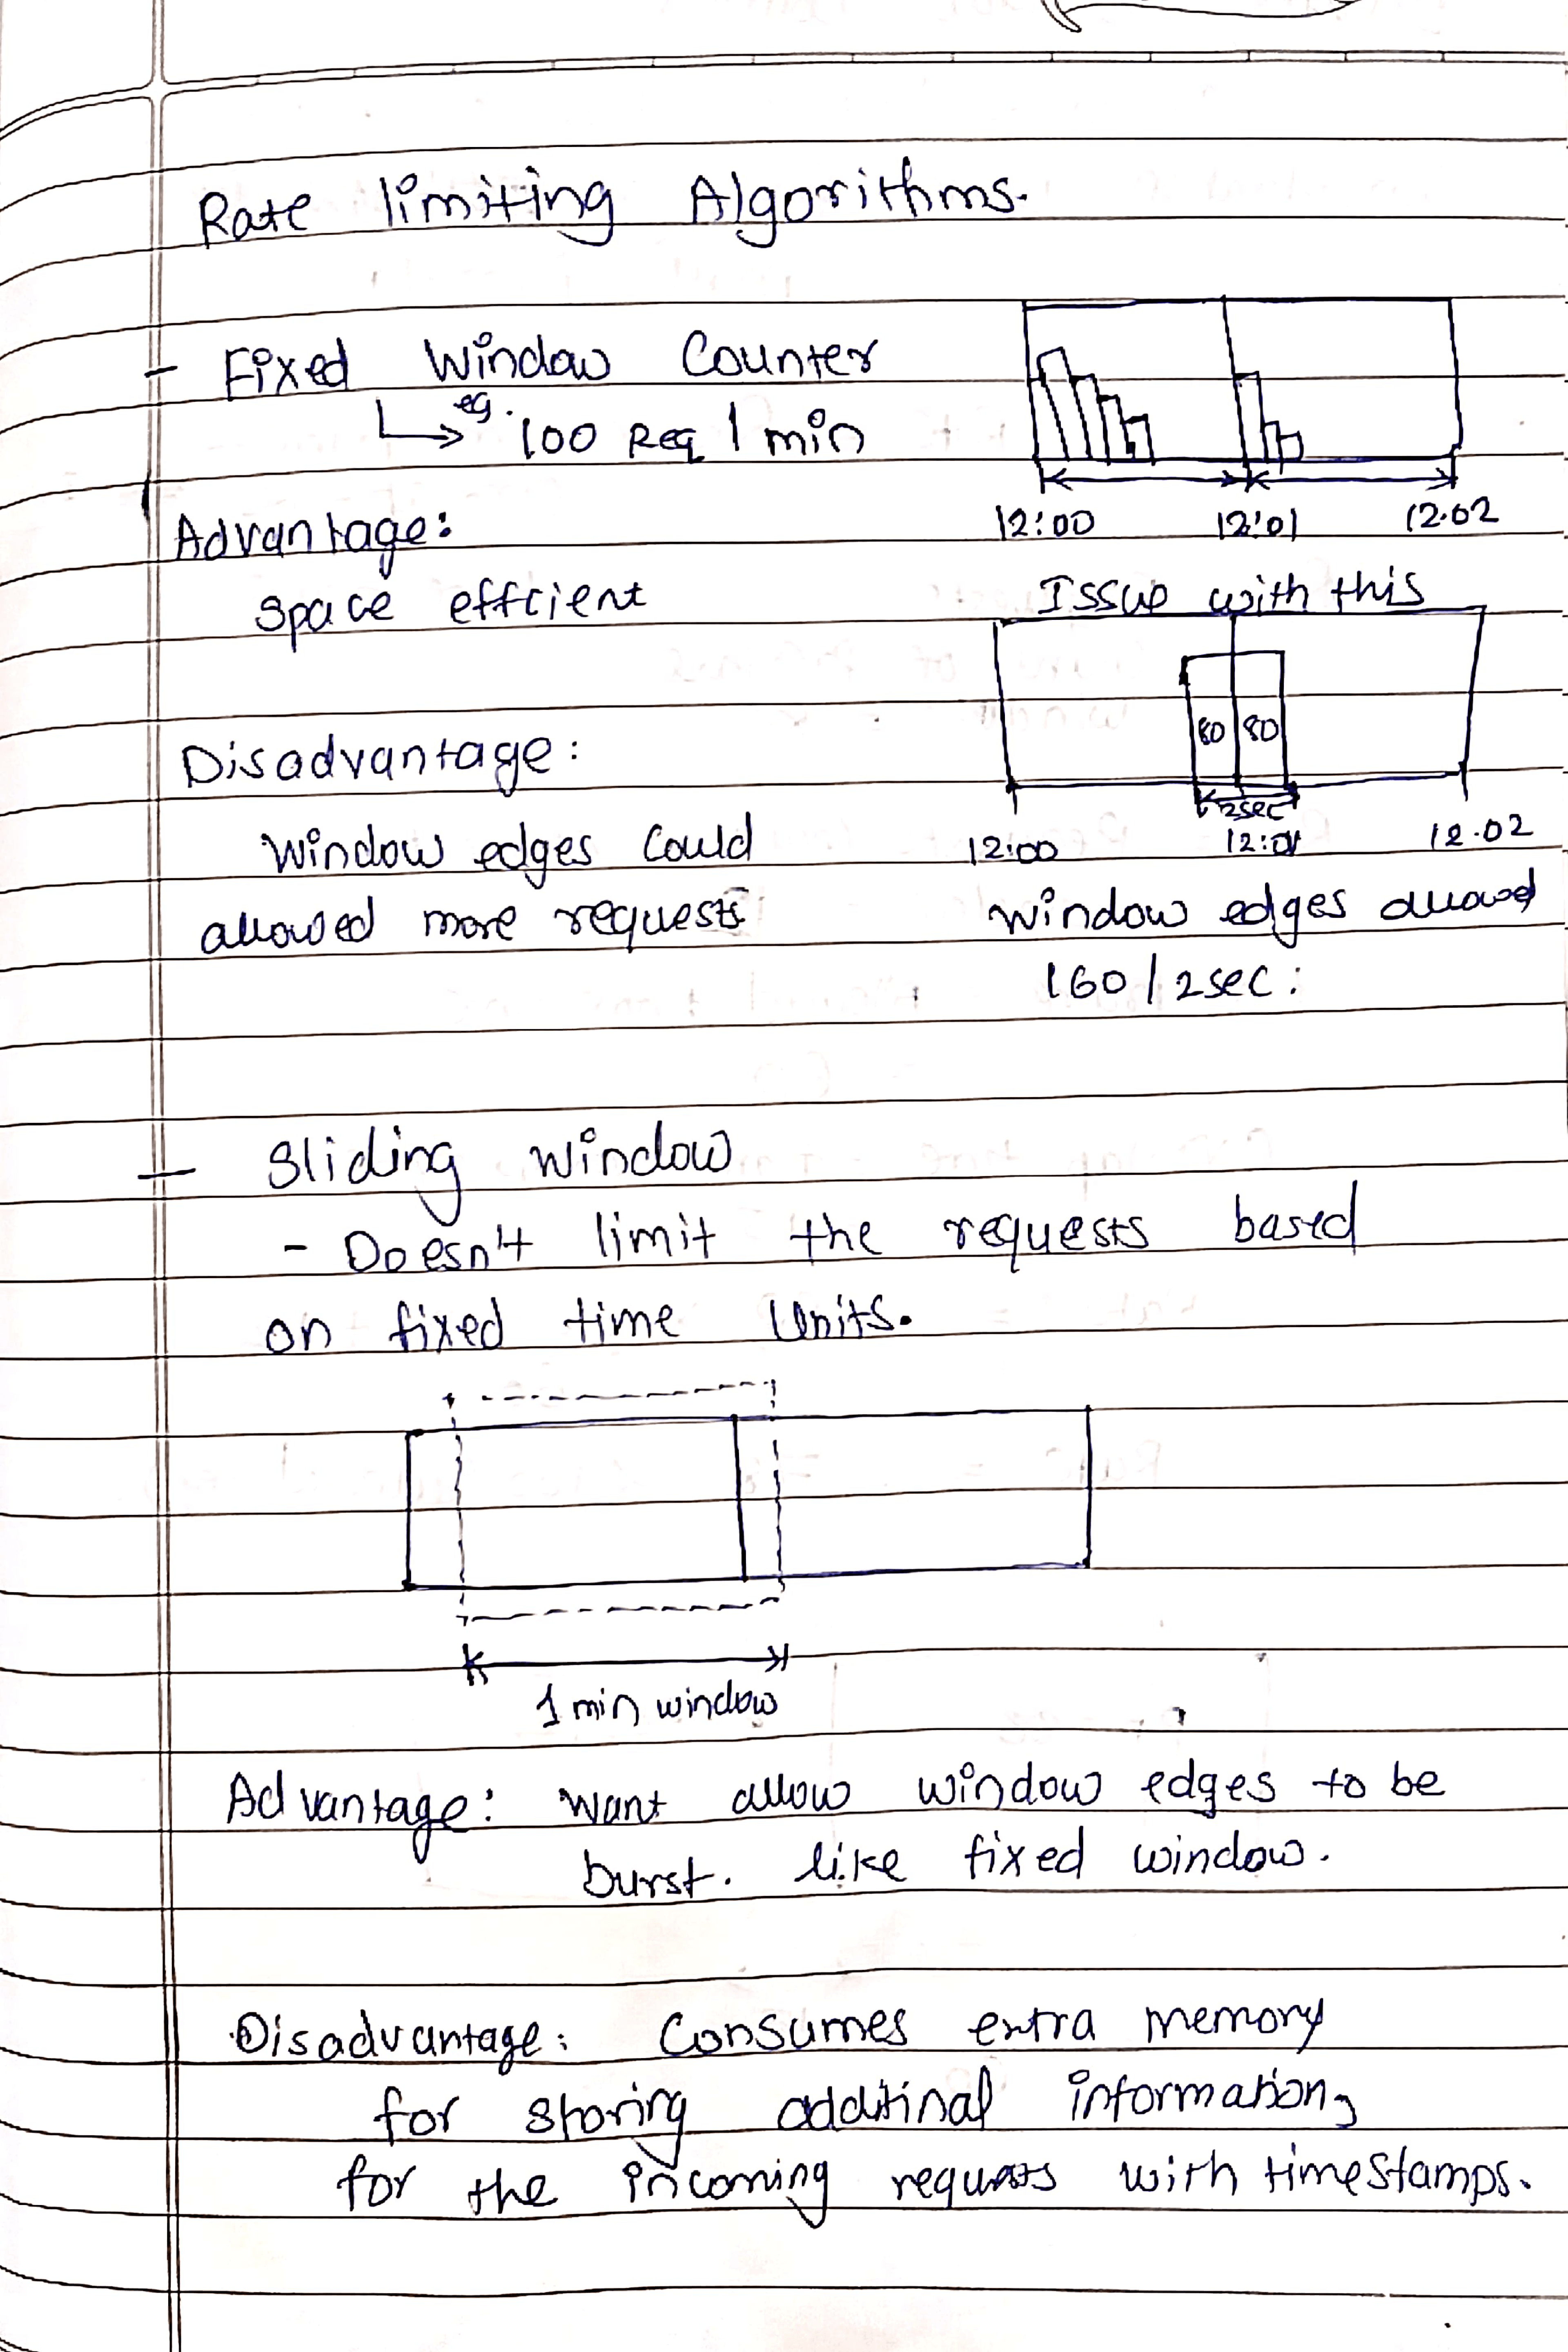 Rate limiting Algorithms.
- Fixed Window Counter
eg. 100 Req / min
12:00 12:01 12.02
Advantage:
space effcient
Issue with this
80 80
2sec
12:00 12:01 12.02
Disadvantage:
Window edges could
allowed more requests
window edges allowed
160 / 2sec:
- Sliding window
- Doesn't limit the requests based
on fixed time Units.
1 min window
Advantage: want allow window edges to be
burst. like fixed window.
Disadvantage: Consumes extra memory
for storing additinal information,
for the incoming requests with timestamps.